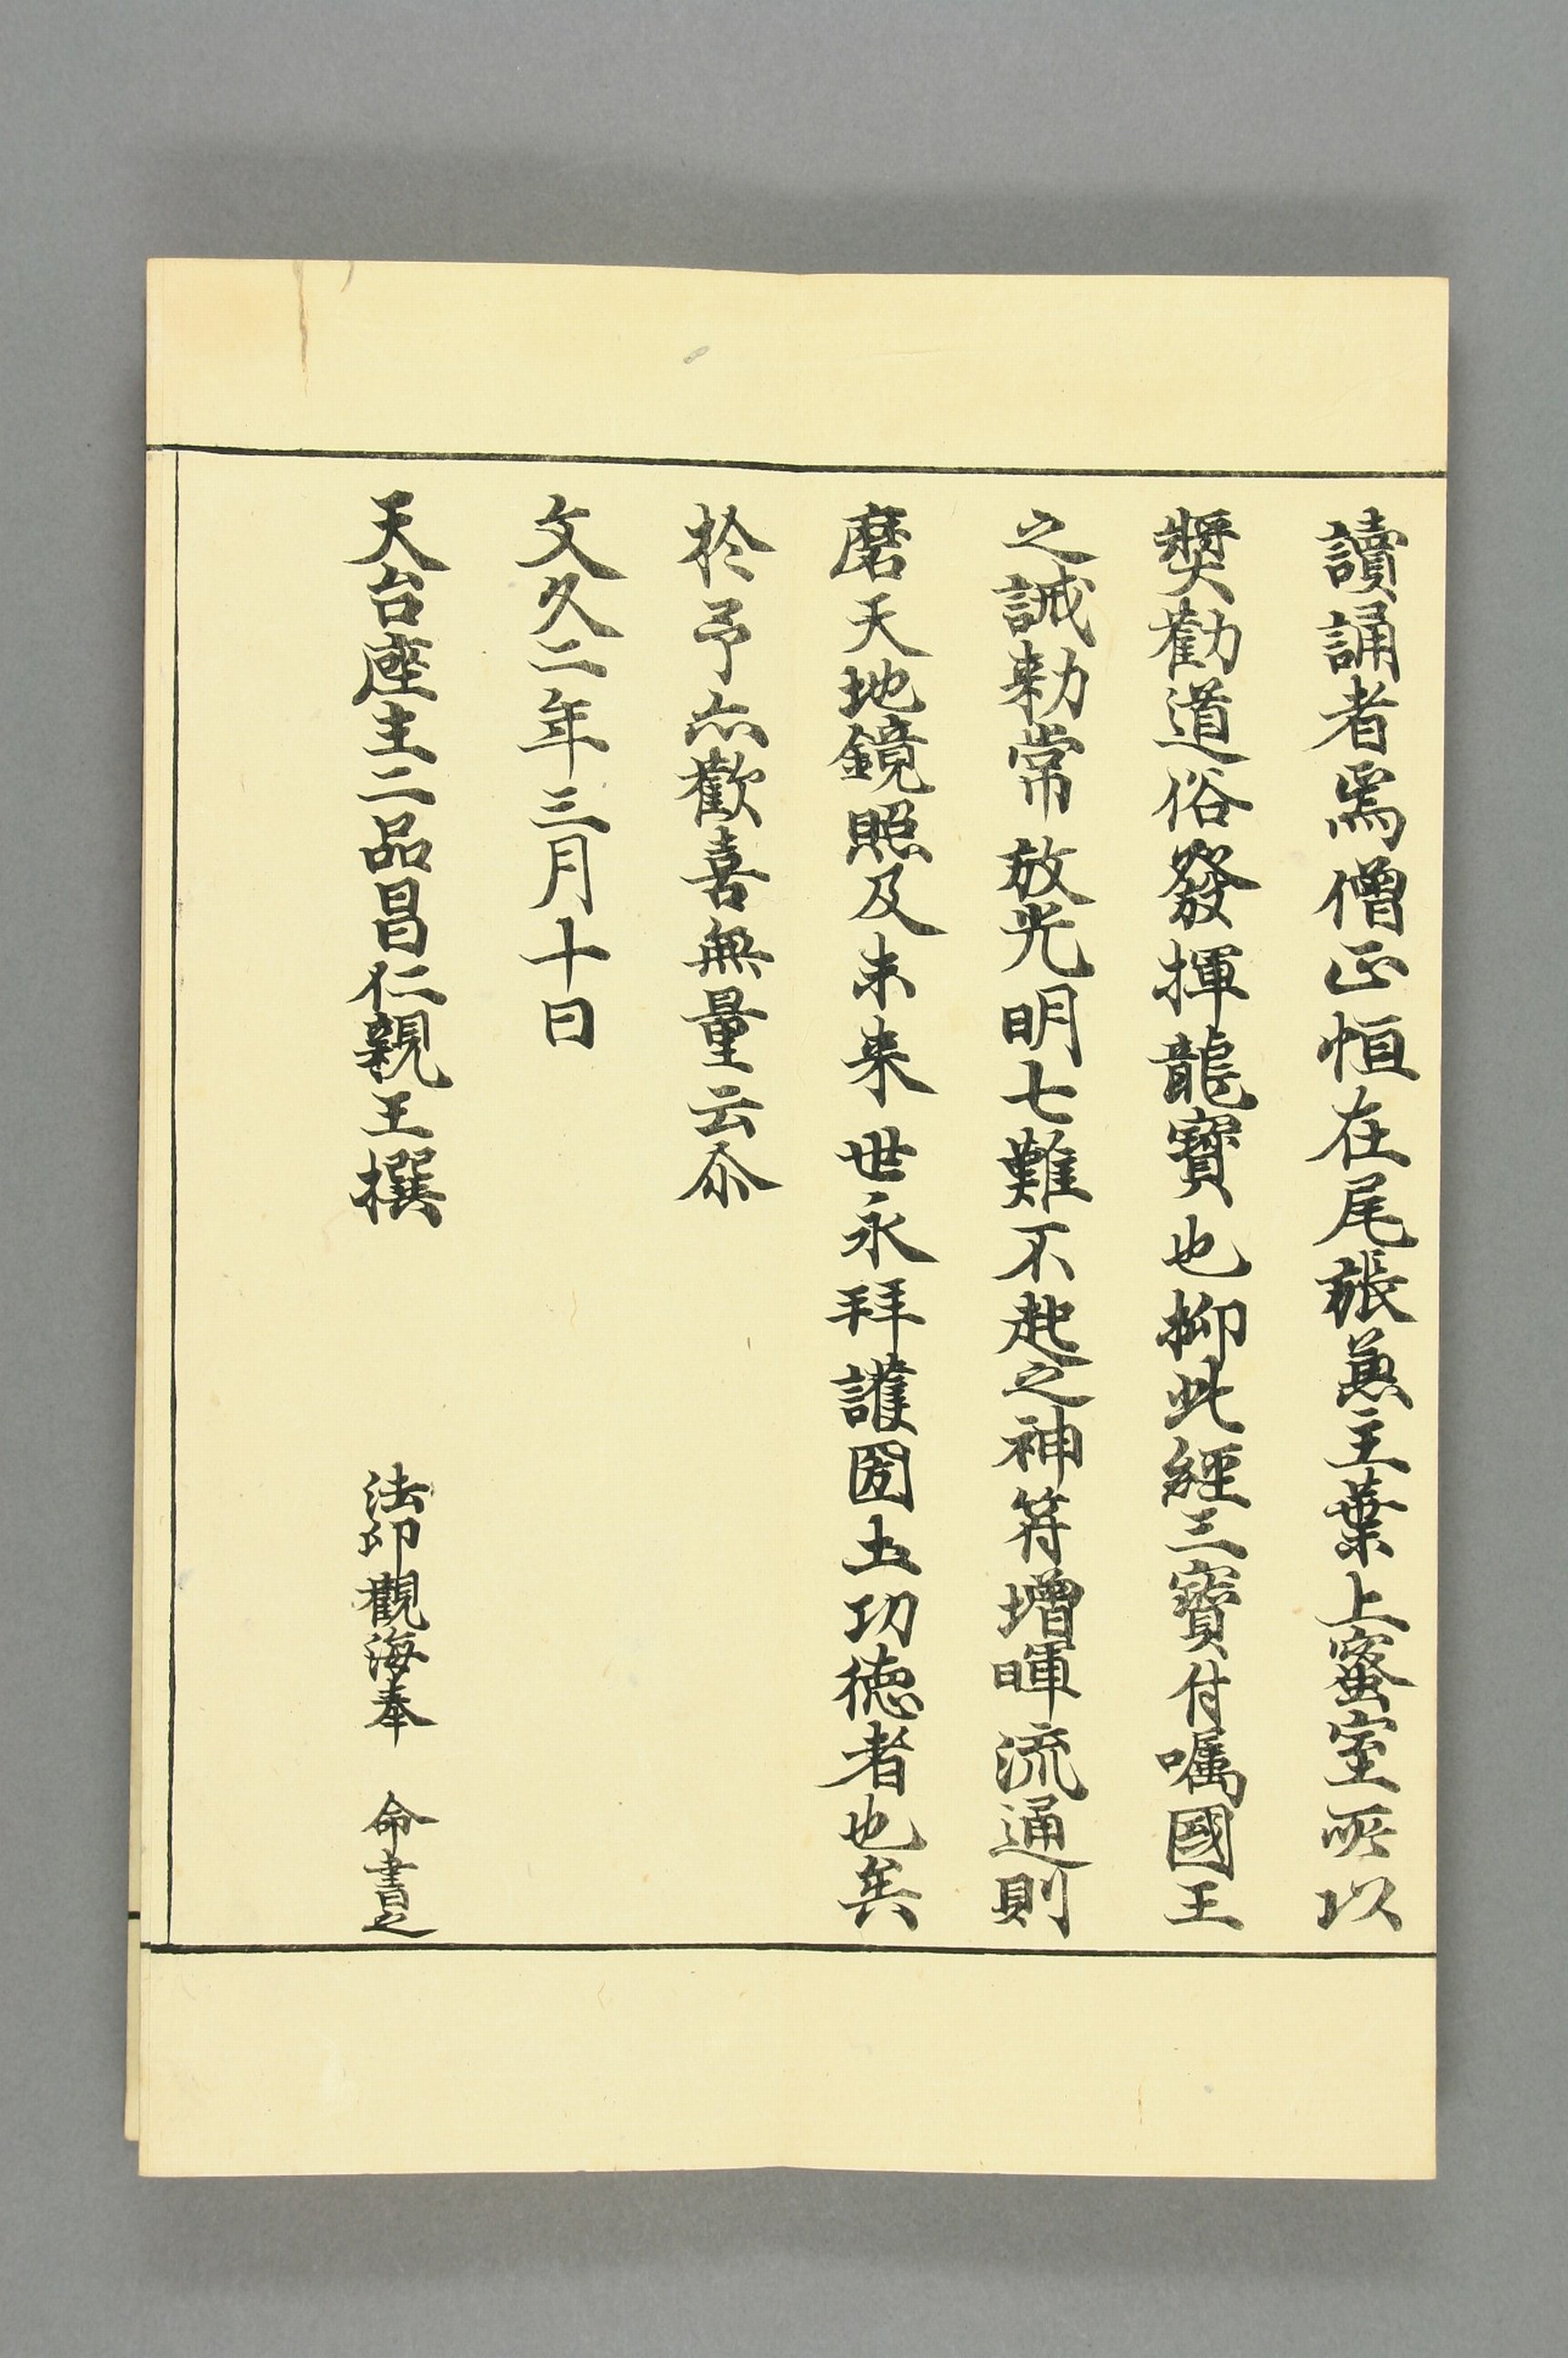 讀誦者焉僧正恒在尾張兼主葉上蜜室所以
奬勸道俗發揮龍寶也抑此經三寶付囑國王
之誡勅常放光明七難不起之神符增暉流通則
磨天地鏡照及未来世永拜護圀土功德者也矣
於予亦歡喜無量云尒
文久二年三月十日
天台座主二品昌仁親王撰
法印觀海奉 命書之